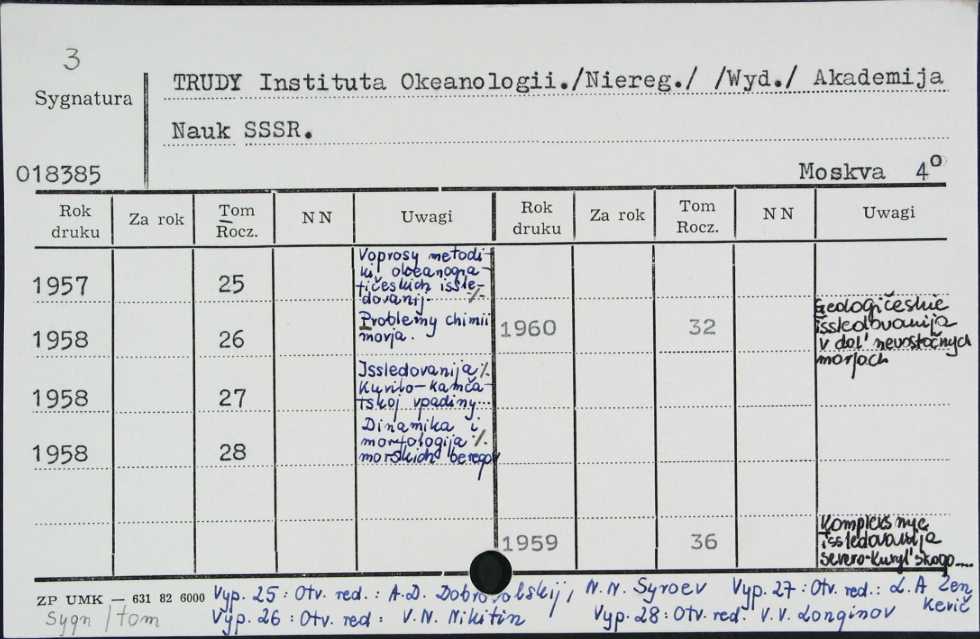 3
Sygnatura
TRUDY Instituta Okeanologii./Niereg./ /Wyd./ Akademija
Nauk SSSR.
018385
Moskva 4°
Rok druku Za rok Tom Rocz. NN Uwagi Rok druku Za rok Tom Rocz. NN Uwagi
1957 25 Voprosy metodi-
ki okeanogra-
fičeskich issle-
dovanij. ./.
1958 26 Problemy chimii
morja.
1960 32 Geologičeskie
issledovanija
v dal'nevostočnych
morjach
1958 27 Issledovanija ./.
Kurilo-kamča-
tskoj vpadiny...
1958 28 Dinamika i
morfologija ./.
morskich beregov
1959 36 Kompleksnye
issledovanija
severo-kuryl'skogo...
ZP UMK — 631 82 6000
Vyp. 25: Otv. red.: A.D. Dobrovolskij, N.N. Syroev Vyp. 27: Otv. red.: L.A Zen
kevič
Sygn / tom
Vyp. 26: Otv. red: V.N. Nikitin Vyp. 28: Otv. red: V.V. Longinov